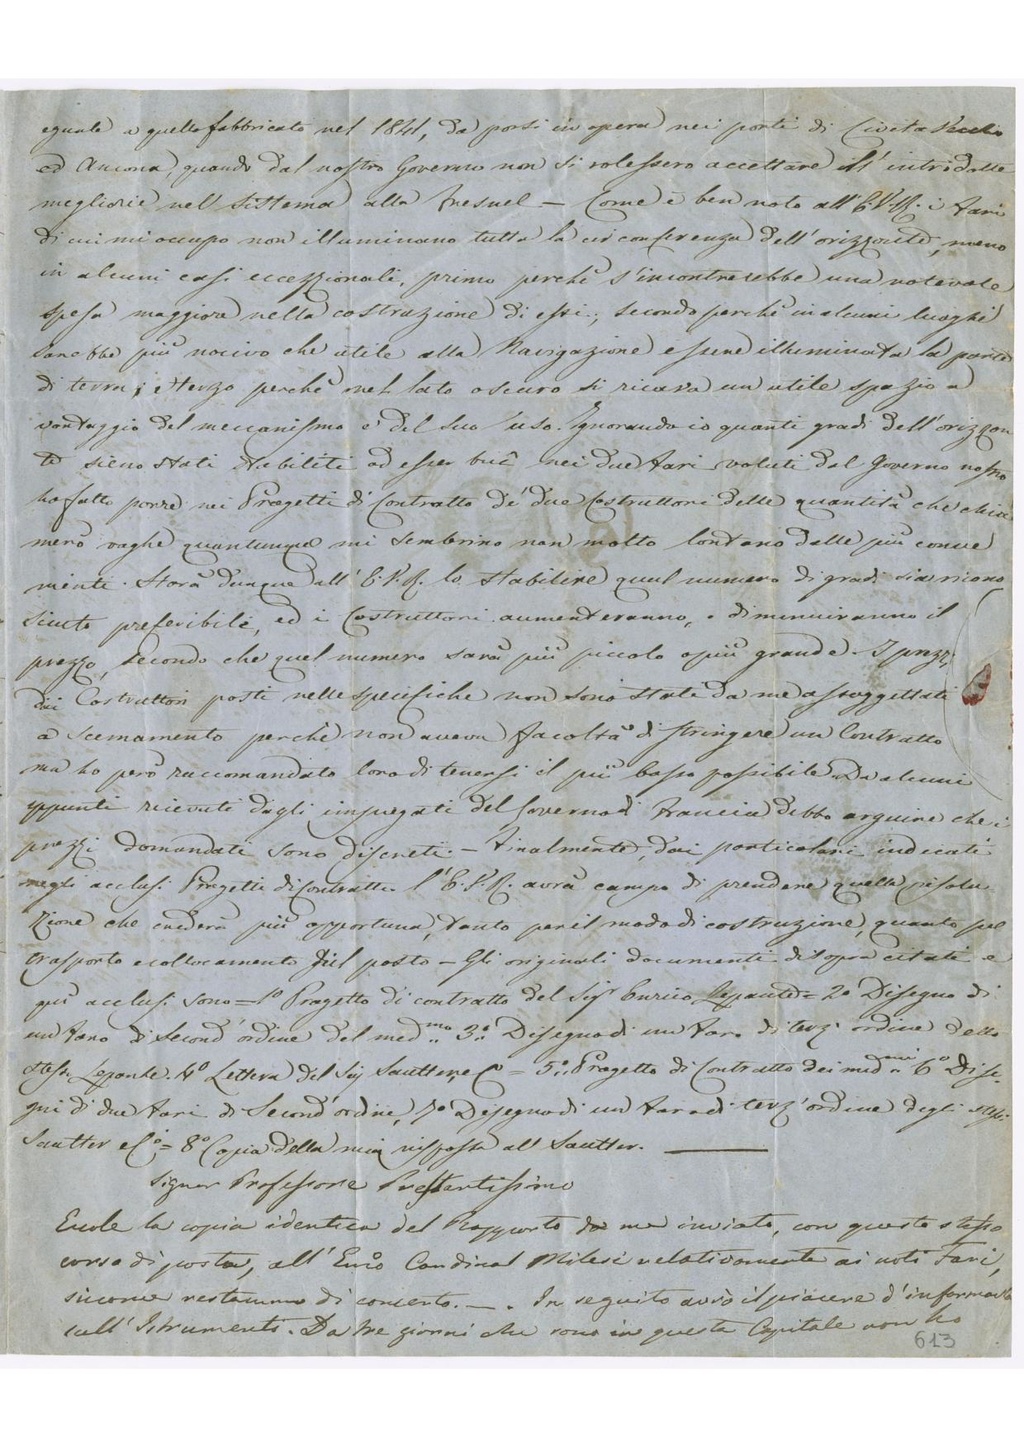 eguale a quello fabbricato nel 1841, da porsi in opera nei porti di Civita Vecchia
ed Ancona, quando dal nostro Governo non si volessero accettare all'introdotte
megliorie nel sistema alla Fresnel — Come è ben noto all'E.V.R. i Fari
di cui mi occupo non illuminano tutta la circonferenza dell'orizzonte, meno
in alcuni casi eccezzionali, primo perchè s'incontrerebbe una notevole
spesa maggiore nella costruzione di essi; secondo perchè in alcuni luoghi
sarebbe più nocivo che utile alla Navigazione essere illuminata la parte
di terra; e terzo perchè nel lato oscuro si ricava un utile spazio a
vantaggio del meccanismo e del suo uso. Ignorando io quanti gradi dell'orizzon
te sieno stati stabiliti ad esser nei due Fari voluti dal Governo nostro
ho fatto porre nei Progetti di Contratto de' due Costruttori delle quantità che chia
merò vaghe quantunque mi sembrino non molto lontano dalle più conve
nienti. Starà dunque all'E.V.R. lo stabilire qual numero di gradi sia ricono
sciuto preferibile, ed i Costruttori aumenteranno, o diminuiranno il
prezzo, secondo che quel numero sarà più piccolo o più grande. I prezzi
dai Costruttori posti nelle specifiche non sono stati da me assoggettati
a scemamento perchè non aveva facoltà di stringere un Contratto
ma ho però raccomandato loro di tenersi il più basso possibile. Da alcuni
appunti ricevuti dagli impiegati del Governo di Francia debbo arguire che i
prezzi domandati sono discreti. — Finalmente, dai particolari indicati
negli acclusi Progetti di Contratto l'E.V.R. avrà campo di prendere quella risolu
zione che crederà più opportuna, tanto per il modo di costruzione, quanto pel
trasporto e collocamento sul posto — Gli originali documenti di sopra citati e
qui acclusi sono = 1º Progetto di contratto del Sigr Enrico Lepaute = 2º Disegno di
un Faro di Second'ordine del medmo 3º Disegno di un Faro di terz'ordine dello
stesso Lepaute. 4º Lettera del Sig Sautter e Co = 5º Progetto di Contratto dei medmi 6º Dise
gni di due Fari di Second'ordine, 7º Disegno di un Faro di terz'ordine degli stessi
Sautter e Co = 8º Copia della mia risposta al Sautter. ———
Signor Professore Prestantissimo
Eccole la copia identica del Rapporto da me inviato, con questo stesso
corso di posta, all'Emo Cardinal Milesi relativamente ai noti Fari,
siccome restammo di concerto. — . In seguito avrò il piacere d'informarla
sull'Istrumento. Da tre giorni che sono in questa Capitale non ho
613